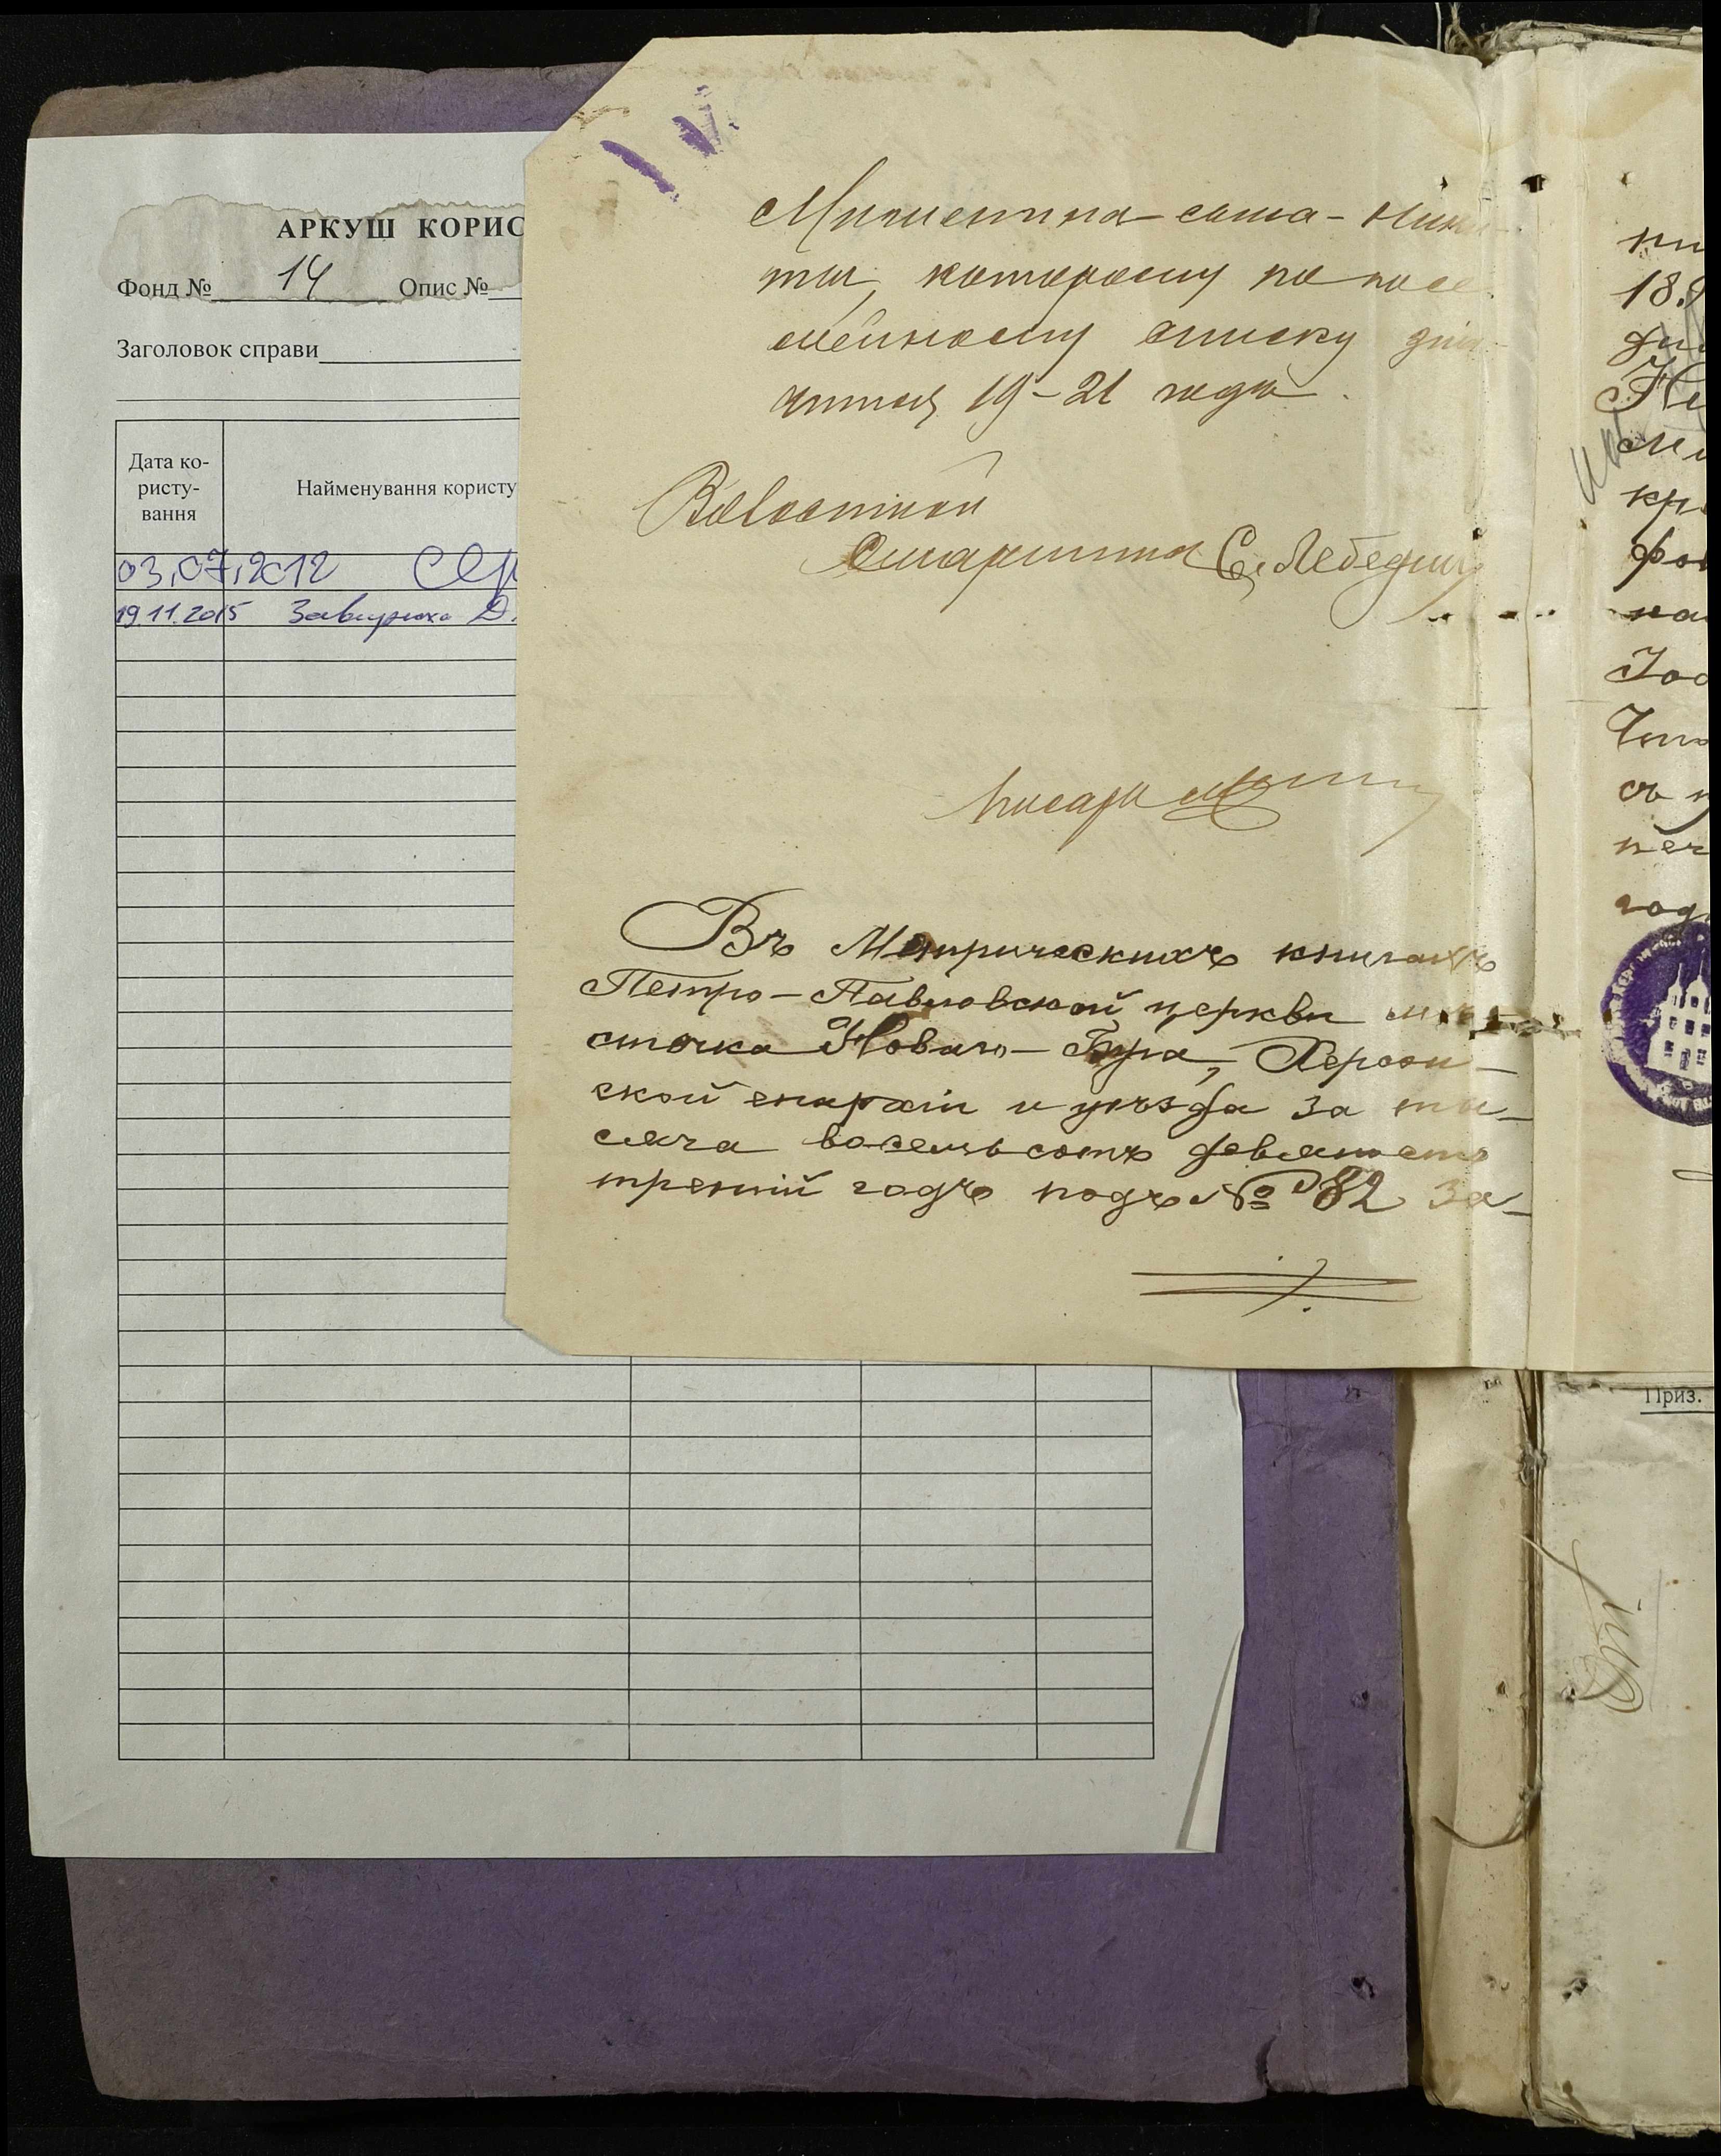 АРКУШ КОРИС
Фонд № 14 Опис №
Заголовок справи
Дата ко-
ристу-
вання
Найменування користу
03.07.2012
19.11.2015 Завирюха Д.
сына
ты, которому по посе
мейному списку
19-21 года.
Волостной
Старшина С. Лебедин
Писарь
Въ Метрическихъ книгахъ
Петро-Павловской церкви мѣ
стечка Новаго-Буга, Херсон-
ской епархіи и уѣзда за ты-
сяча восемьсотъ девяносто
третій годъ подъ № 82 за-
18.9
кр
фов
на
Іос
съ
печ
год
Приз.